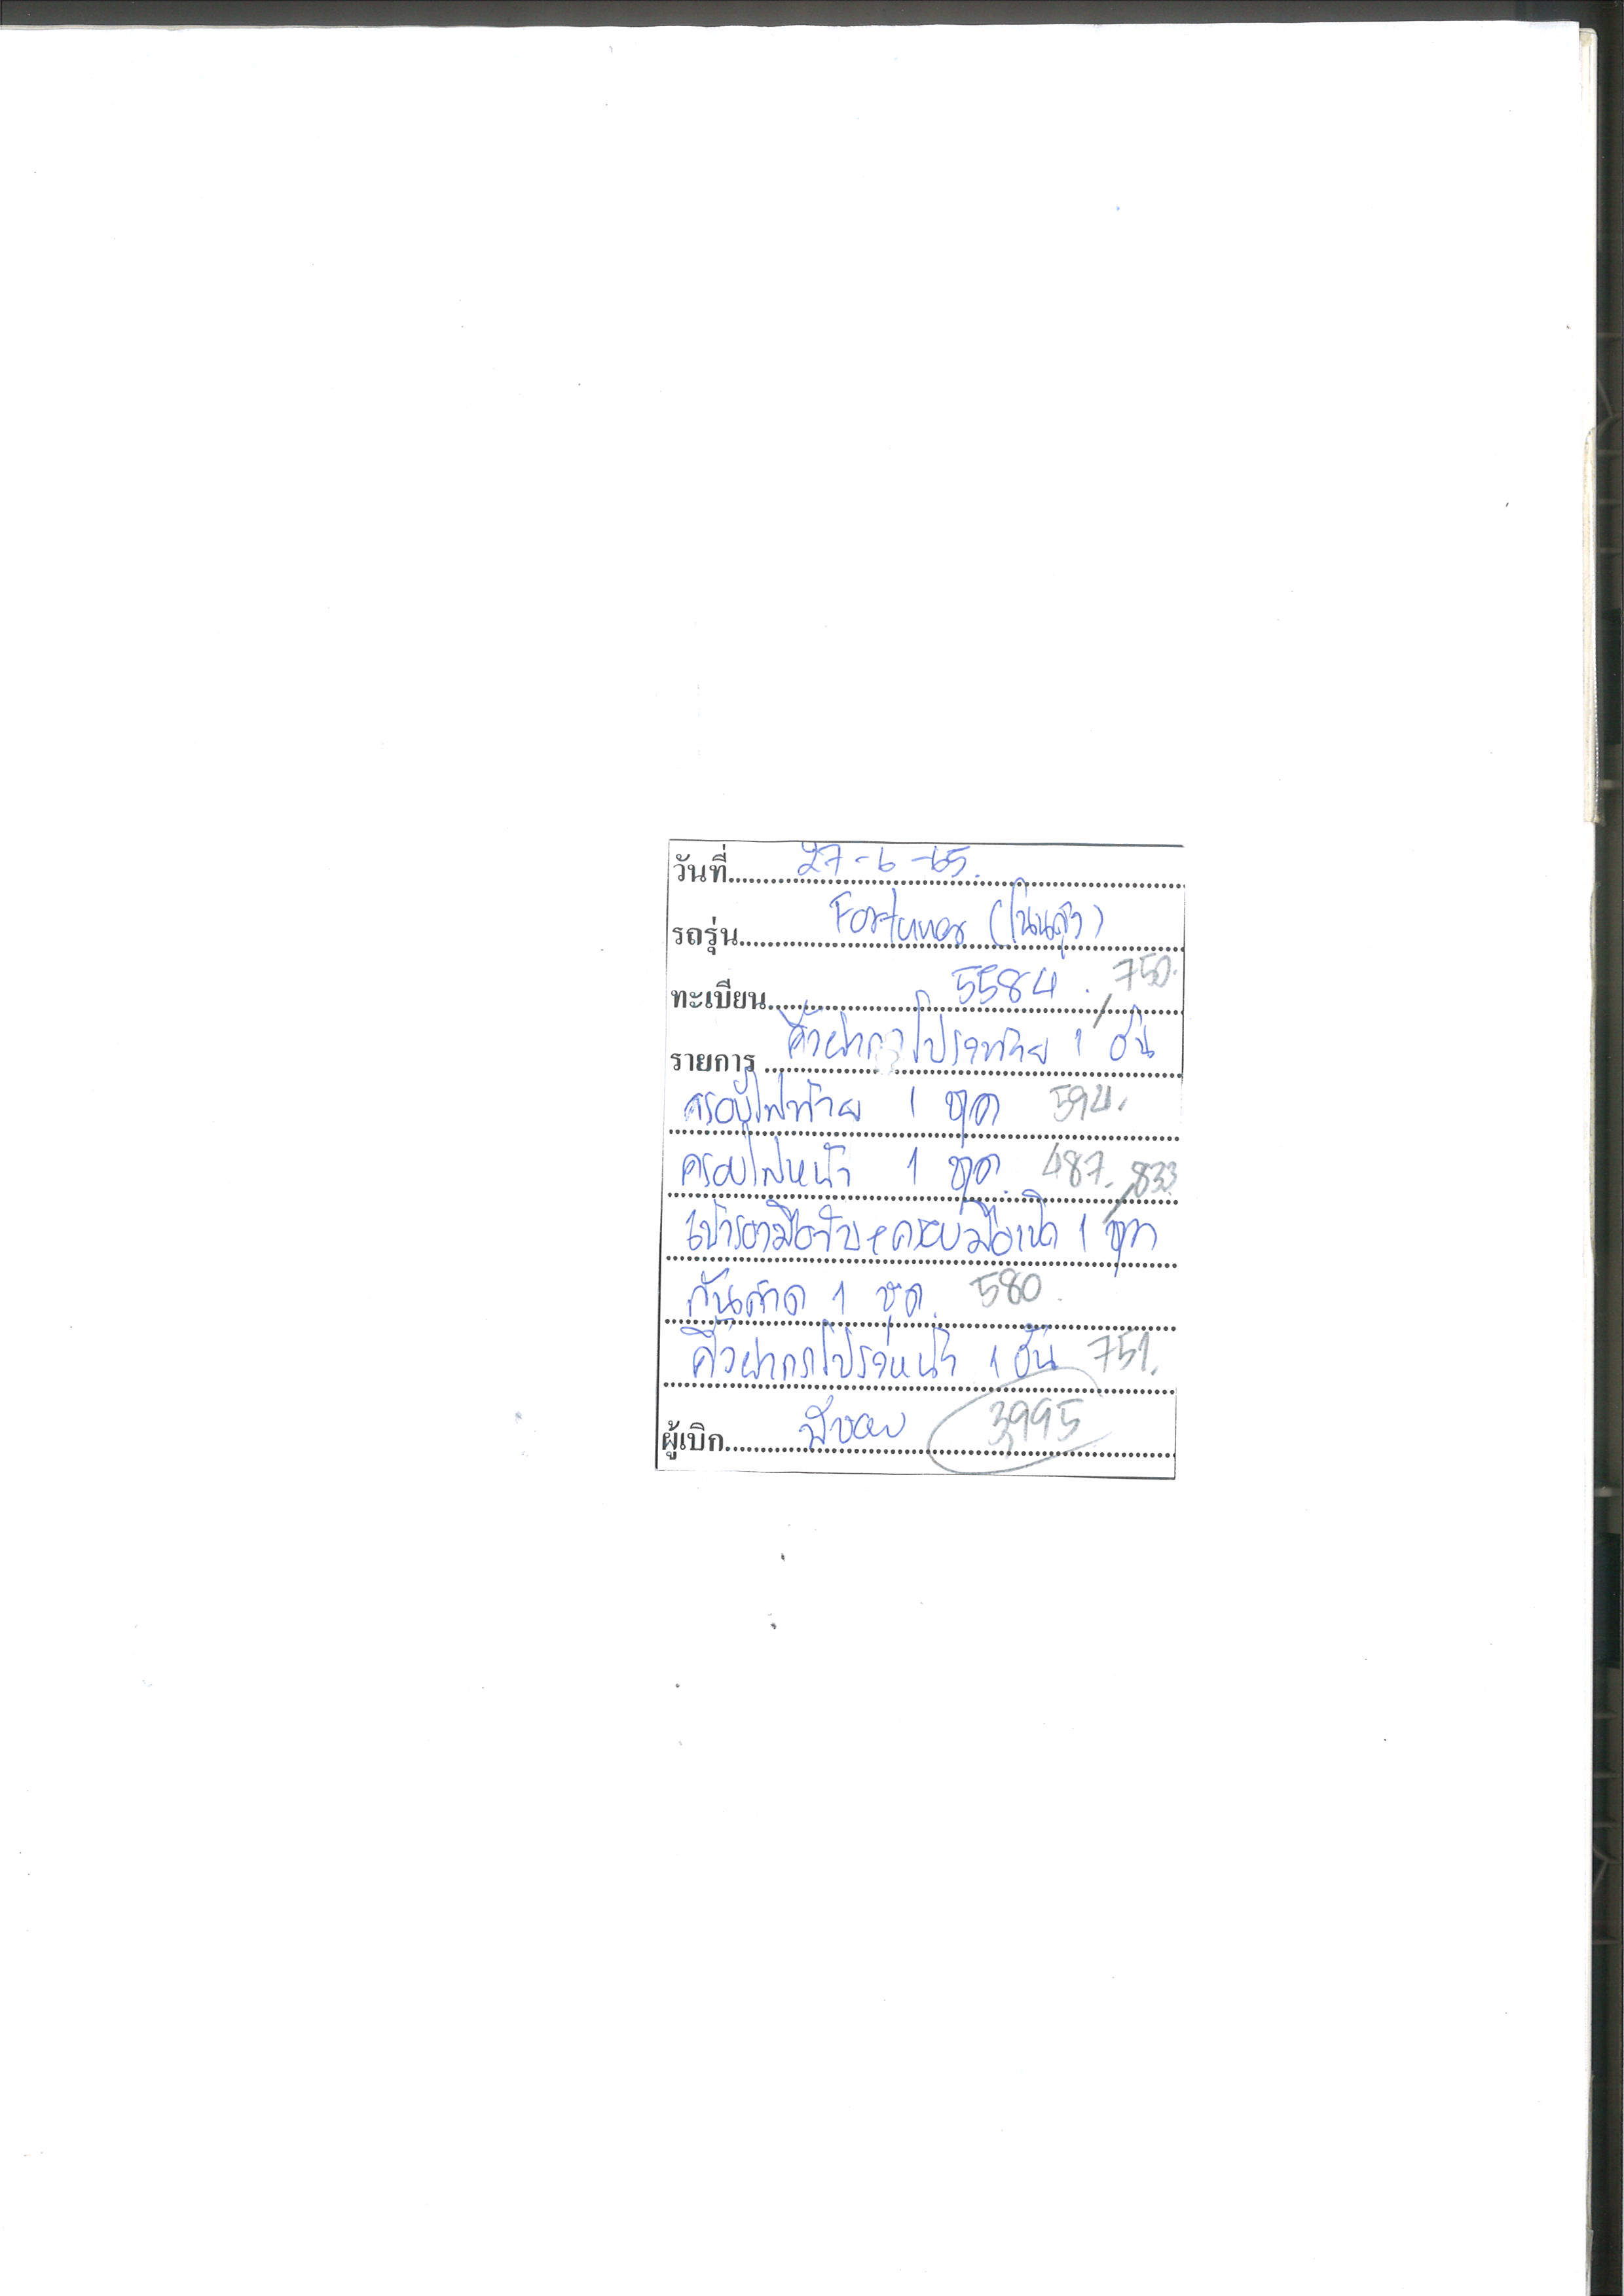 วันที่ 27-6-65.
รถรุ่น Fortuner (โฉมเก่า)
ทะเบียน 5584. 750.
รายการ คิ้วฝากระโปรงท้าย 1 อัน
ครอบไฟท้าย 1 ชุด 594.
ครอบไฟหน้า 1 ชุด. 487. 833
เบ้ารองมือจับ+ครอบมือเปิด 1 ชุด
กันสาด 1 ชุด. 580.
คิ้วฝากระโปรงหน้า 1 อัน 751.
ผู้เบิก 3995